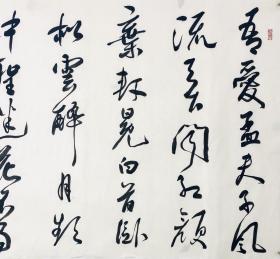 吾愛孟夫子風
流天下聞紅顏
棄軒冕白首臥
松雲醉月頻
中聖迷花不事